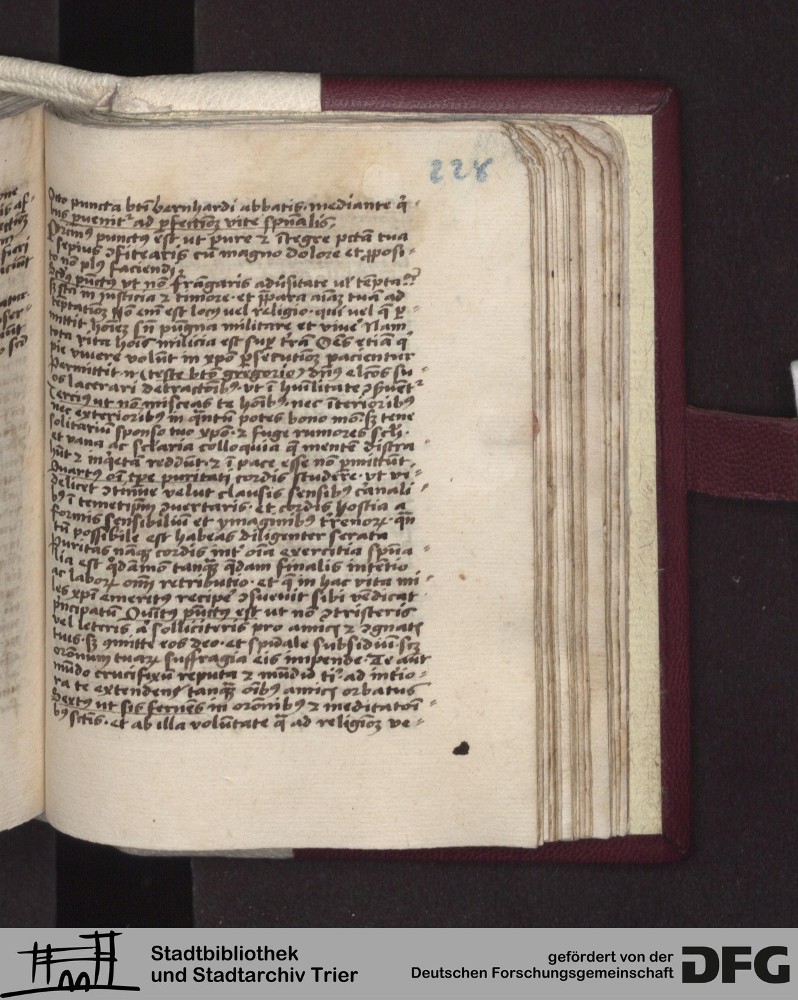 228
Octo puncta bti bernhardi abbatis mediante q̄
bus puenit ad pfectioȝ vite spūalis
Primꝰ punctꝰ est ut pure ⁊ ītegre pctā tua
sepius ꝯfitearis cū magno dolore et ꝓposi
to nō plꝰ faciendi
Scdꝰ pūctꝰ ut nō frāngaris adūsitate ul tēpta
sȝ sta in iusticia ⁊ timore et ꝑpara aīaȝ tuā ad
tēptatioȝ Nō enī est locꝰ vel religio qui vel q̄ ꝑ
mittit hoīeȝ sn̄ pugna militare et viuē Nam
tota vita hoīs milicia est suꝑ trā Oēs etiā q̄
pie viuere volūt in xp̄o ꝑsecutioȝ pacientur
Permittit n̄ teste bto gregorio dn̄s elcōs su
os lacerari detractoībꝰ ut ī huīlitate ꝯseruēt
Terciꝰ ut nō misceas te hoībꝰ nec īterioribꝰ
nec exterioribꝰ in q̄ntū potes bono mō sȝ tene
solitariū sponso tuo xp̄o ⁊ fuge rumores scl̄i
et vana ac scl̄aria colloquia q̄ mentē distra
hūt ⁊ inq̄etā reddūt ⁊ ī pace esse nō ꝑmittūt
Quartꝰ oī tp̄e puritati cordis studere ut vi
delicet ꝯtinue velut clausis sensibꝰ carnali
bꝰ ī temetip̄m ꝯuertaris et cordis hostia a
formis sensibiliū et ymaginibꝰ trēnoꝝ q̄n
tū possibile est habeas diligenter serata
Puritas naq̄ cordis int̄ oīa exercitia spūa
lia est q̄dāmō tanq̄ q̄dam finalis intētio
ac laboꝝ om̄i retributio et q̄ in hac vita mi
les xp̄i emeritꝰ recipē ꝯsueuit sibi vēdicat
pncipatū Quītꝰ pūctꝰ est ut nō ꝯtristeris
vel leteris aū solliciteris pro amicis ⁊ ꝯgnatis
tuis sȝ ꝯmitte eos deo et spūale subsidiū sȝ
oronum tuaꝝ suffragia eis impende Te aūt
mūdo crucifixū reputa ⁊ mūdū tibi ad intio
ra te extendens tanq̄ oībꝰ amicis orbatus
Sextꝰ ut sis feruēs in orōnibꝰ ⁊ meditatoī
bꝰ sctīs et ab illa volūtate q̄ ad religioȝ ve
Stadtbibliothek
und Stadtarchiv Trier
gefördert von der
Deutschen Forschungsgemeinschaft
DFG